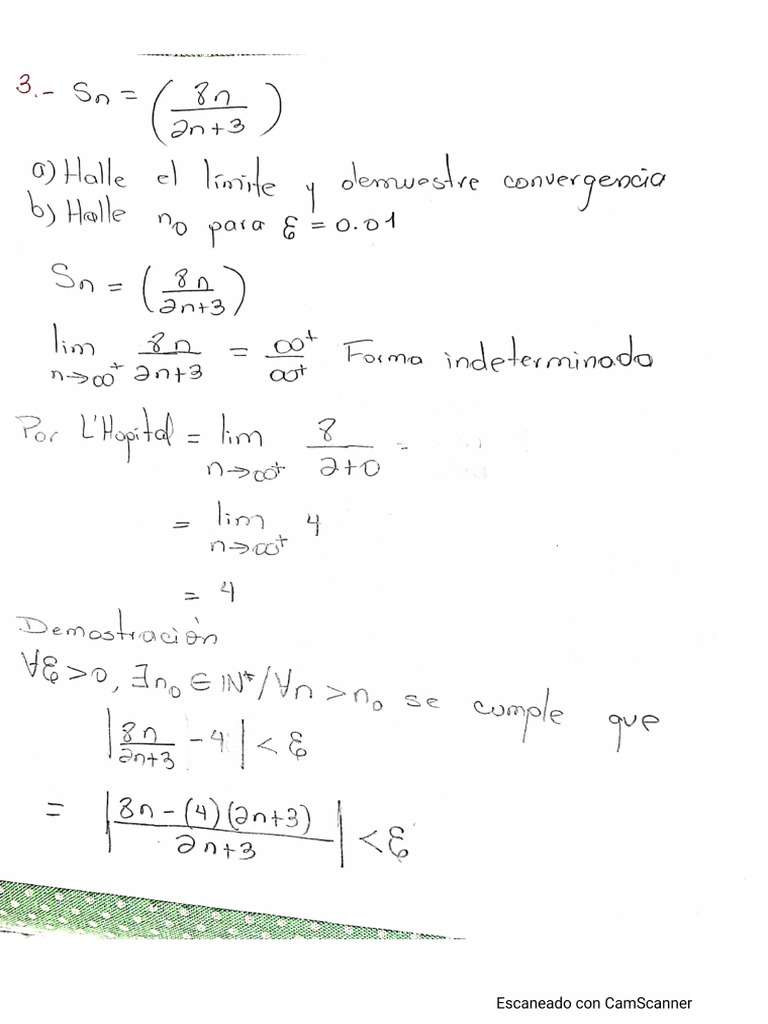 3.- Sn = (8n / 2n+3)
a) Halle el límite y demuestre convergencia
b) Halle n₀ para ε = 0.01
Sn = (8n / 2n+3)
lim n→∞⁺ 8n / 2n+3 = ∞⁺ / ∞⁺ Forma indeterminada
Por L'Hopital = lim n→∞⁺ 8 / 2+0 =
= lim n→∞⁺ 4
= 4
Demostración
∀ε>0, ∃n₀ ∈ IN*/∀n>n₀ se cumple que
|8n / 2n+3 - 4| < ε
= |8n-(4)(2n+3) / 2n+3| < ε
Escaneado con CamScanner